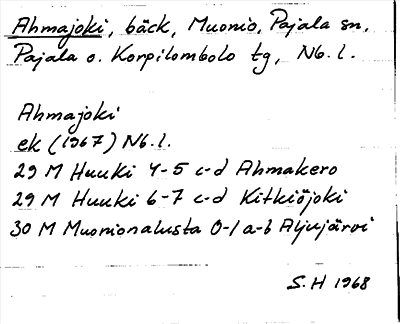 Ahmajoki, bäck, Muonio, Pajala sn,
Pajala o. Korpilombolo tg, Nb. l.
Ahmajoki
ek (1967) Nb. l.
29 M Huuki 4-5 c-d Ahmakero
29 M Huuki 6-7 c-d Kitkiöjoki
30 M Muonionalusta 0-1 a-b Aljujärvi
S.H 1968